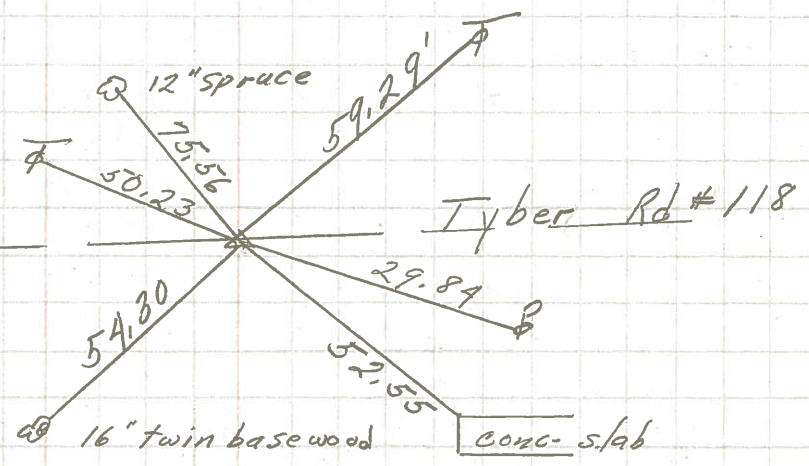 12" spruce
59.29'
75.56
50.23
Tyber Rd #118
29.84
54.30
52.55
16" twin basewood
conc- slab